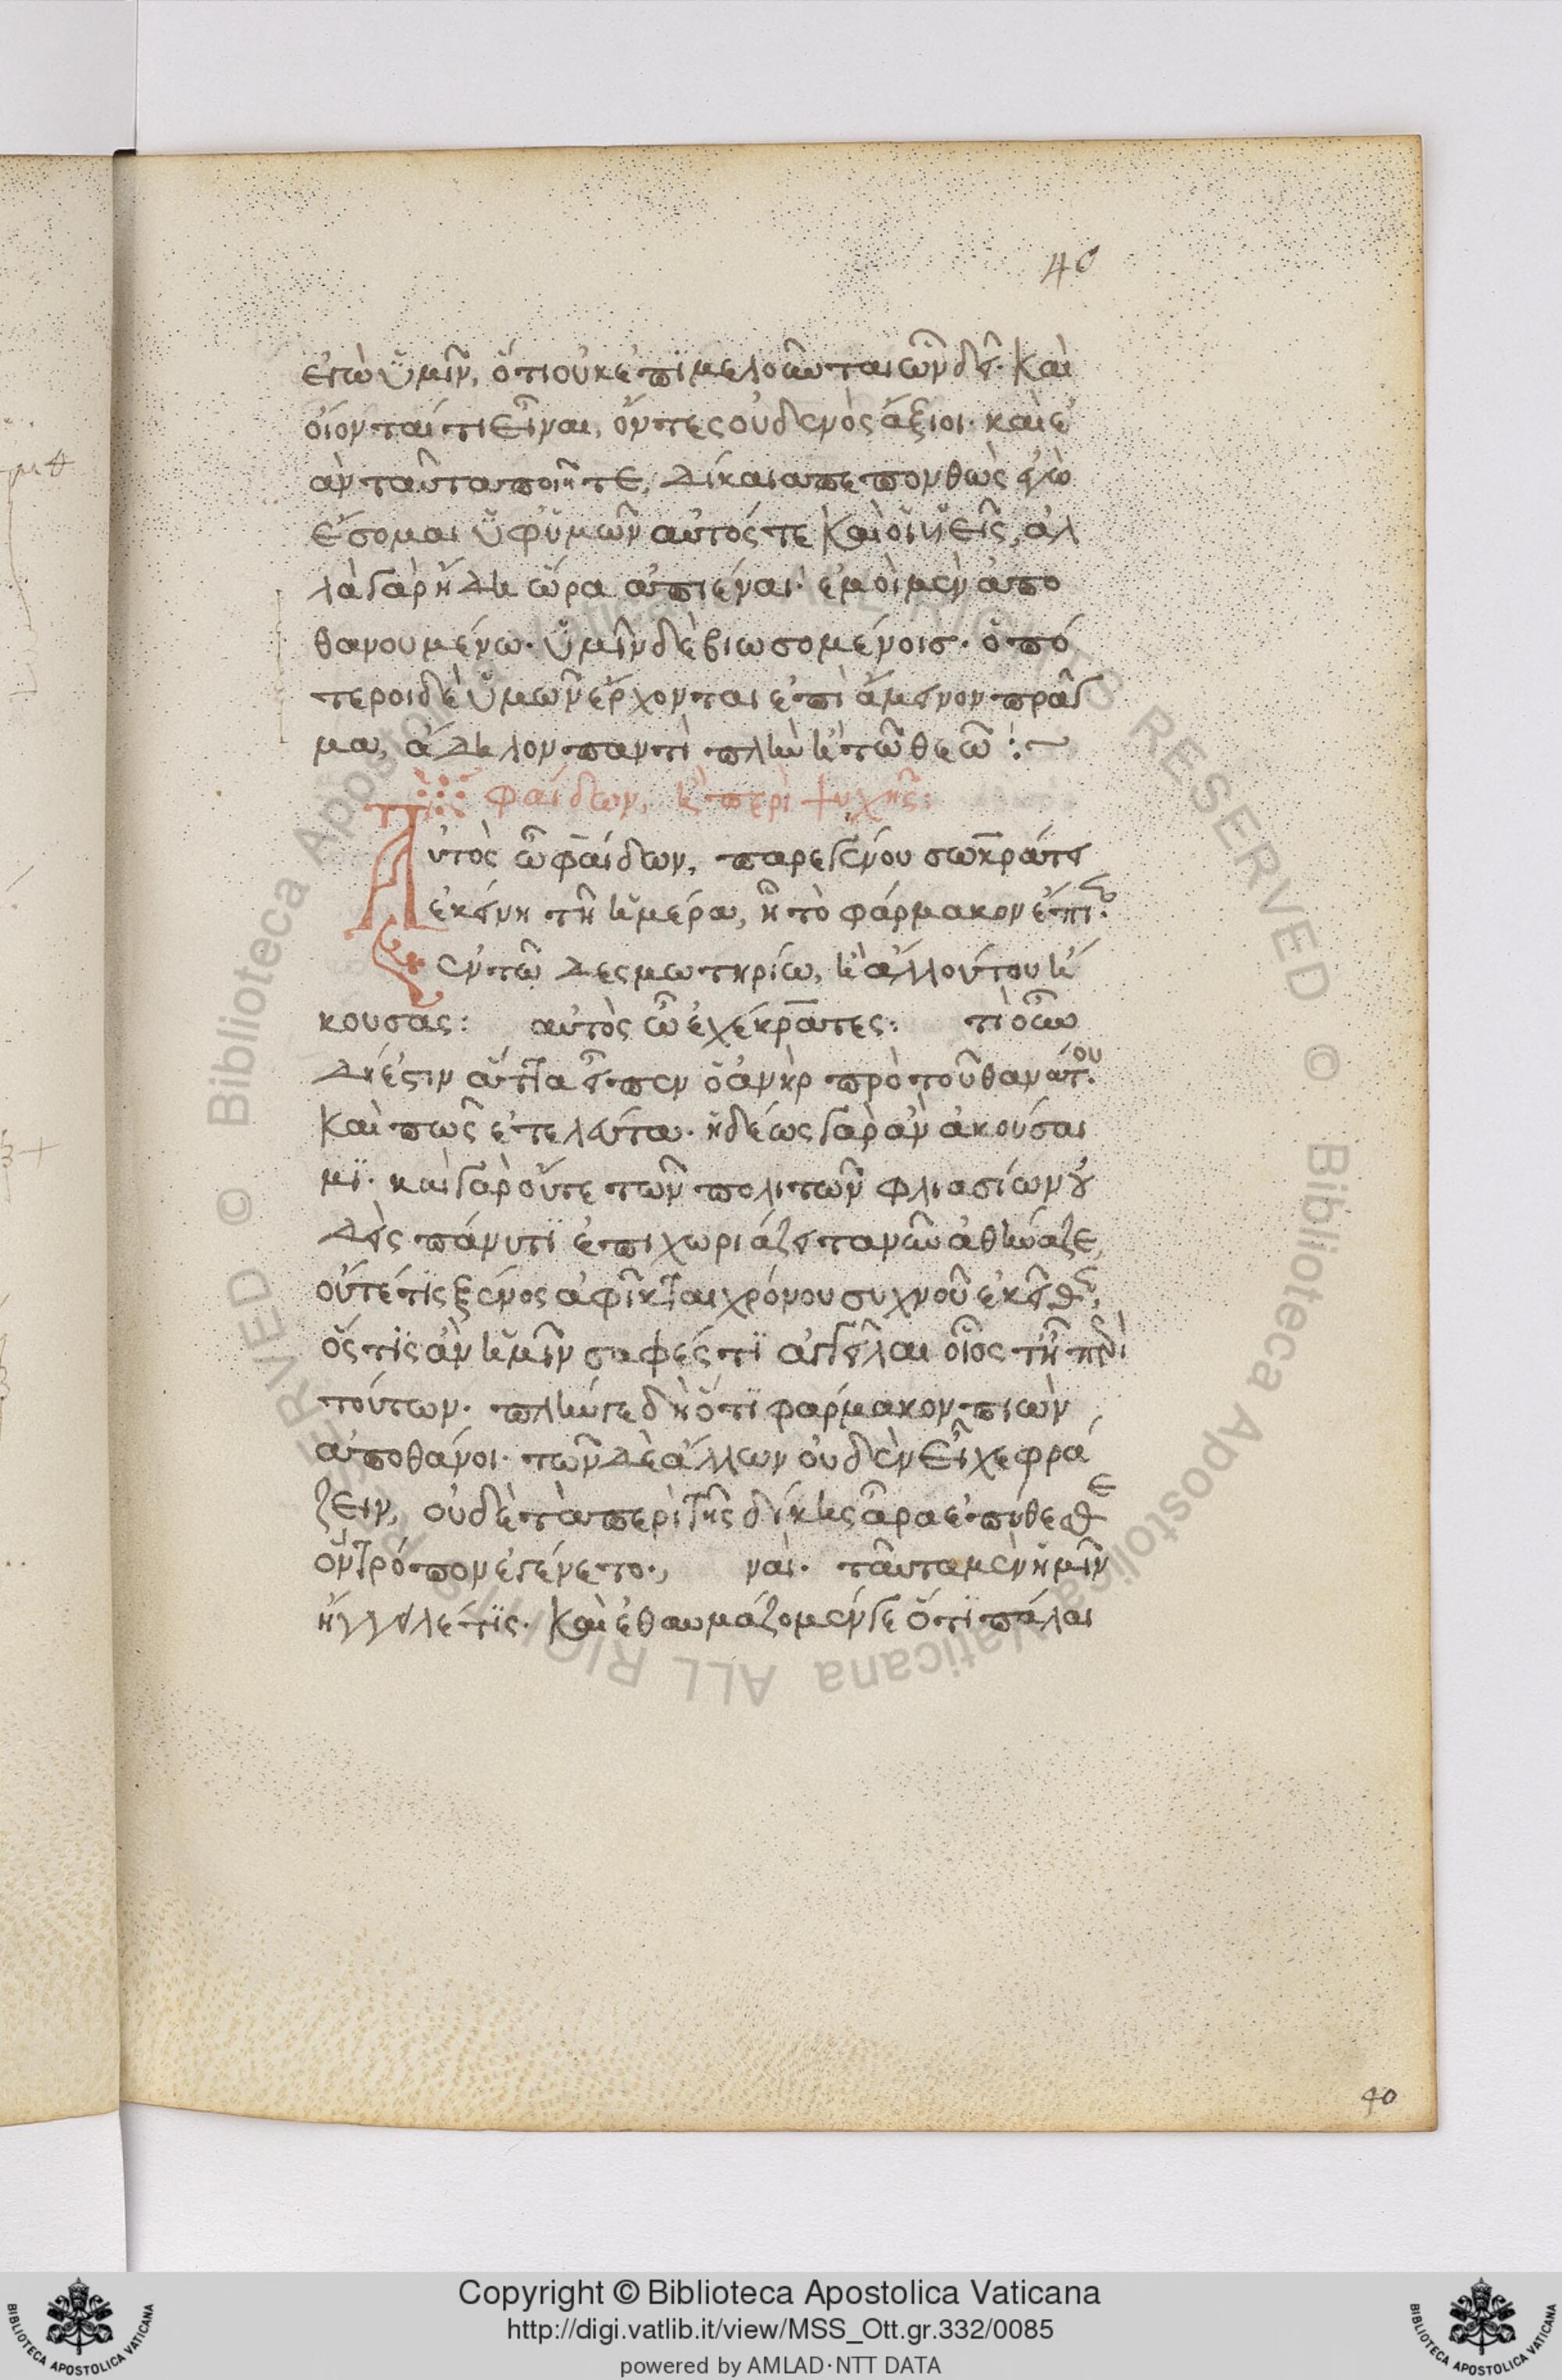 40
ἐγὼ ὑμῖν, ὅτι οὐκ ἐπιμελοῦνται ὧν δεῖ. καὶ
οἴονταί τι εἶναι, ὄντες οὐδενὸς ἄξιοι. καὶ ἐ
ὰν ταῦτα ποιῆτε, δίκαια πεπονθὼς ἐγὼ
ἔσομαι ὑφ' ὑμῶν αὐτός τε καὶ οἱ υἱεῖς, ἀλ
λὰ γὰρ ἤδη ὥρα ἀπιέναι· ἐμοὶ μὲν ἀπο
θανουμένω. ὑμῖν δὲ βιωσομένοις. ὁπό
τεροι δὲ ὑμῶν ἔρχονται ἐπὶ ἄμεινον πρᾶγ
μα, ἄδηλον παντὶ πλὴν ἢ τῶ θεῶ :~
Φαίδων, ἢ περὶ ψυχῆς:
Αὐτὸς ὦ φαίδων, παρεγένου σωκράτει
ἐκείνη τῆ ἡμέρα, ἧ τὸ φάρμακον ἔπιεν
ἐν τῶ δεσμωτηρίω, ἢ ἄλλου του ἤ
κουσας: αὐτὸς ὦ ἐχέκρατες: τί οὖν
δή ἐστιν ἅττα εἶπεν ὁ ἀνὴρ πρὸ τοῦ θανάτου
καὶ πῶς ἐτελεύτα. ἡδέως γὰρ ἂν ἀκούσαι
μι. καὶ γὰρ οὔτε τῶν πολιτῶν φλιασίων οὐ
δεὶς πάνυ τι ἐπιχωριάζει τανῦν ἀθήναζε,
οὔτέ τις ξένος ἀφῖκται χρόνου συχνοῦ ἐκεῖθεν,
ὅςτις ἂν ἡμῖν σαφές τι ἀγγεῖλαι οἷός τ' ἦν περὶ
τούτων. πλήν γε δὴ ὅτι φάρμακον πιὼν
ἀποθάνοι. τῶν δὲ ἄλλων οὐδὲν εἶχε φρά
ζειν, οὐδὲ τὰ περὶ τῆς δίκης ἄρα ἐπύθεσθε
ὃν τρόπον ἐγένετο., ναί. ταῦτα μὲν ἡμῖν
ἤγγειλέ τις. καὶ ἐθαυμάζομέν γε ὅτι πάλαι
40
Copyright © Biblioteca Apostolica Vaticana
http://digi.vatlib.it/view/MSS_Ott.gr.332/0085
powered by AMLAD·NTT DATA